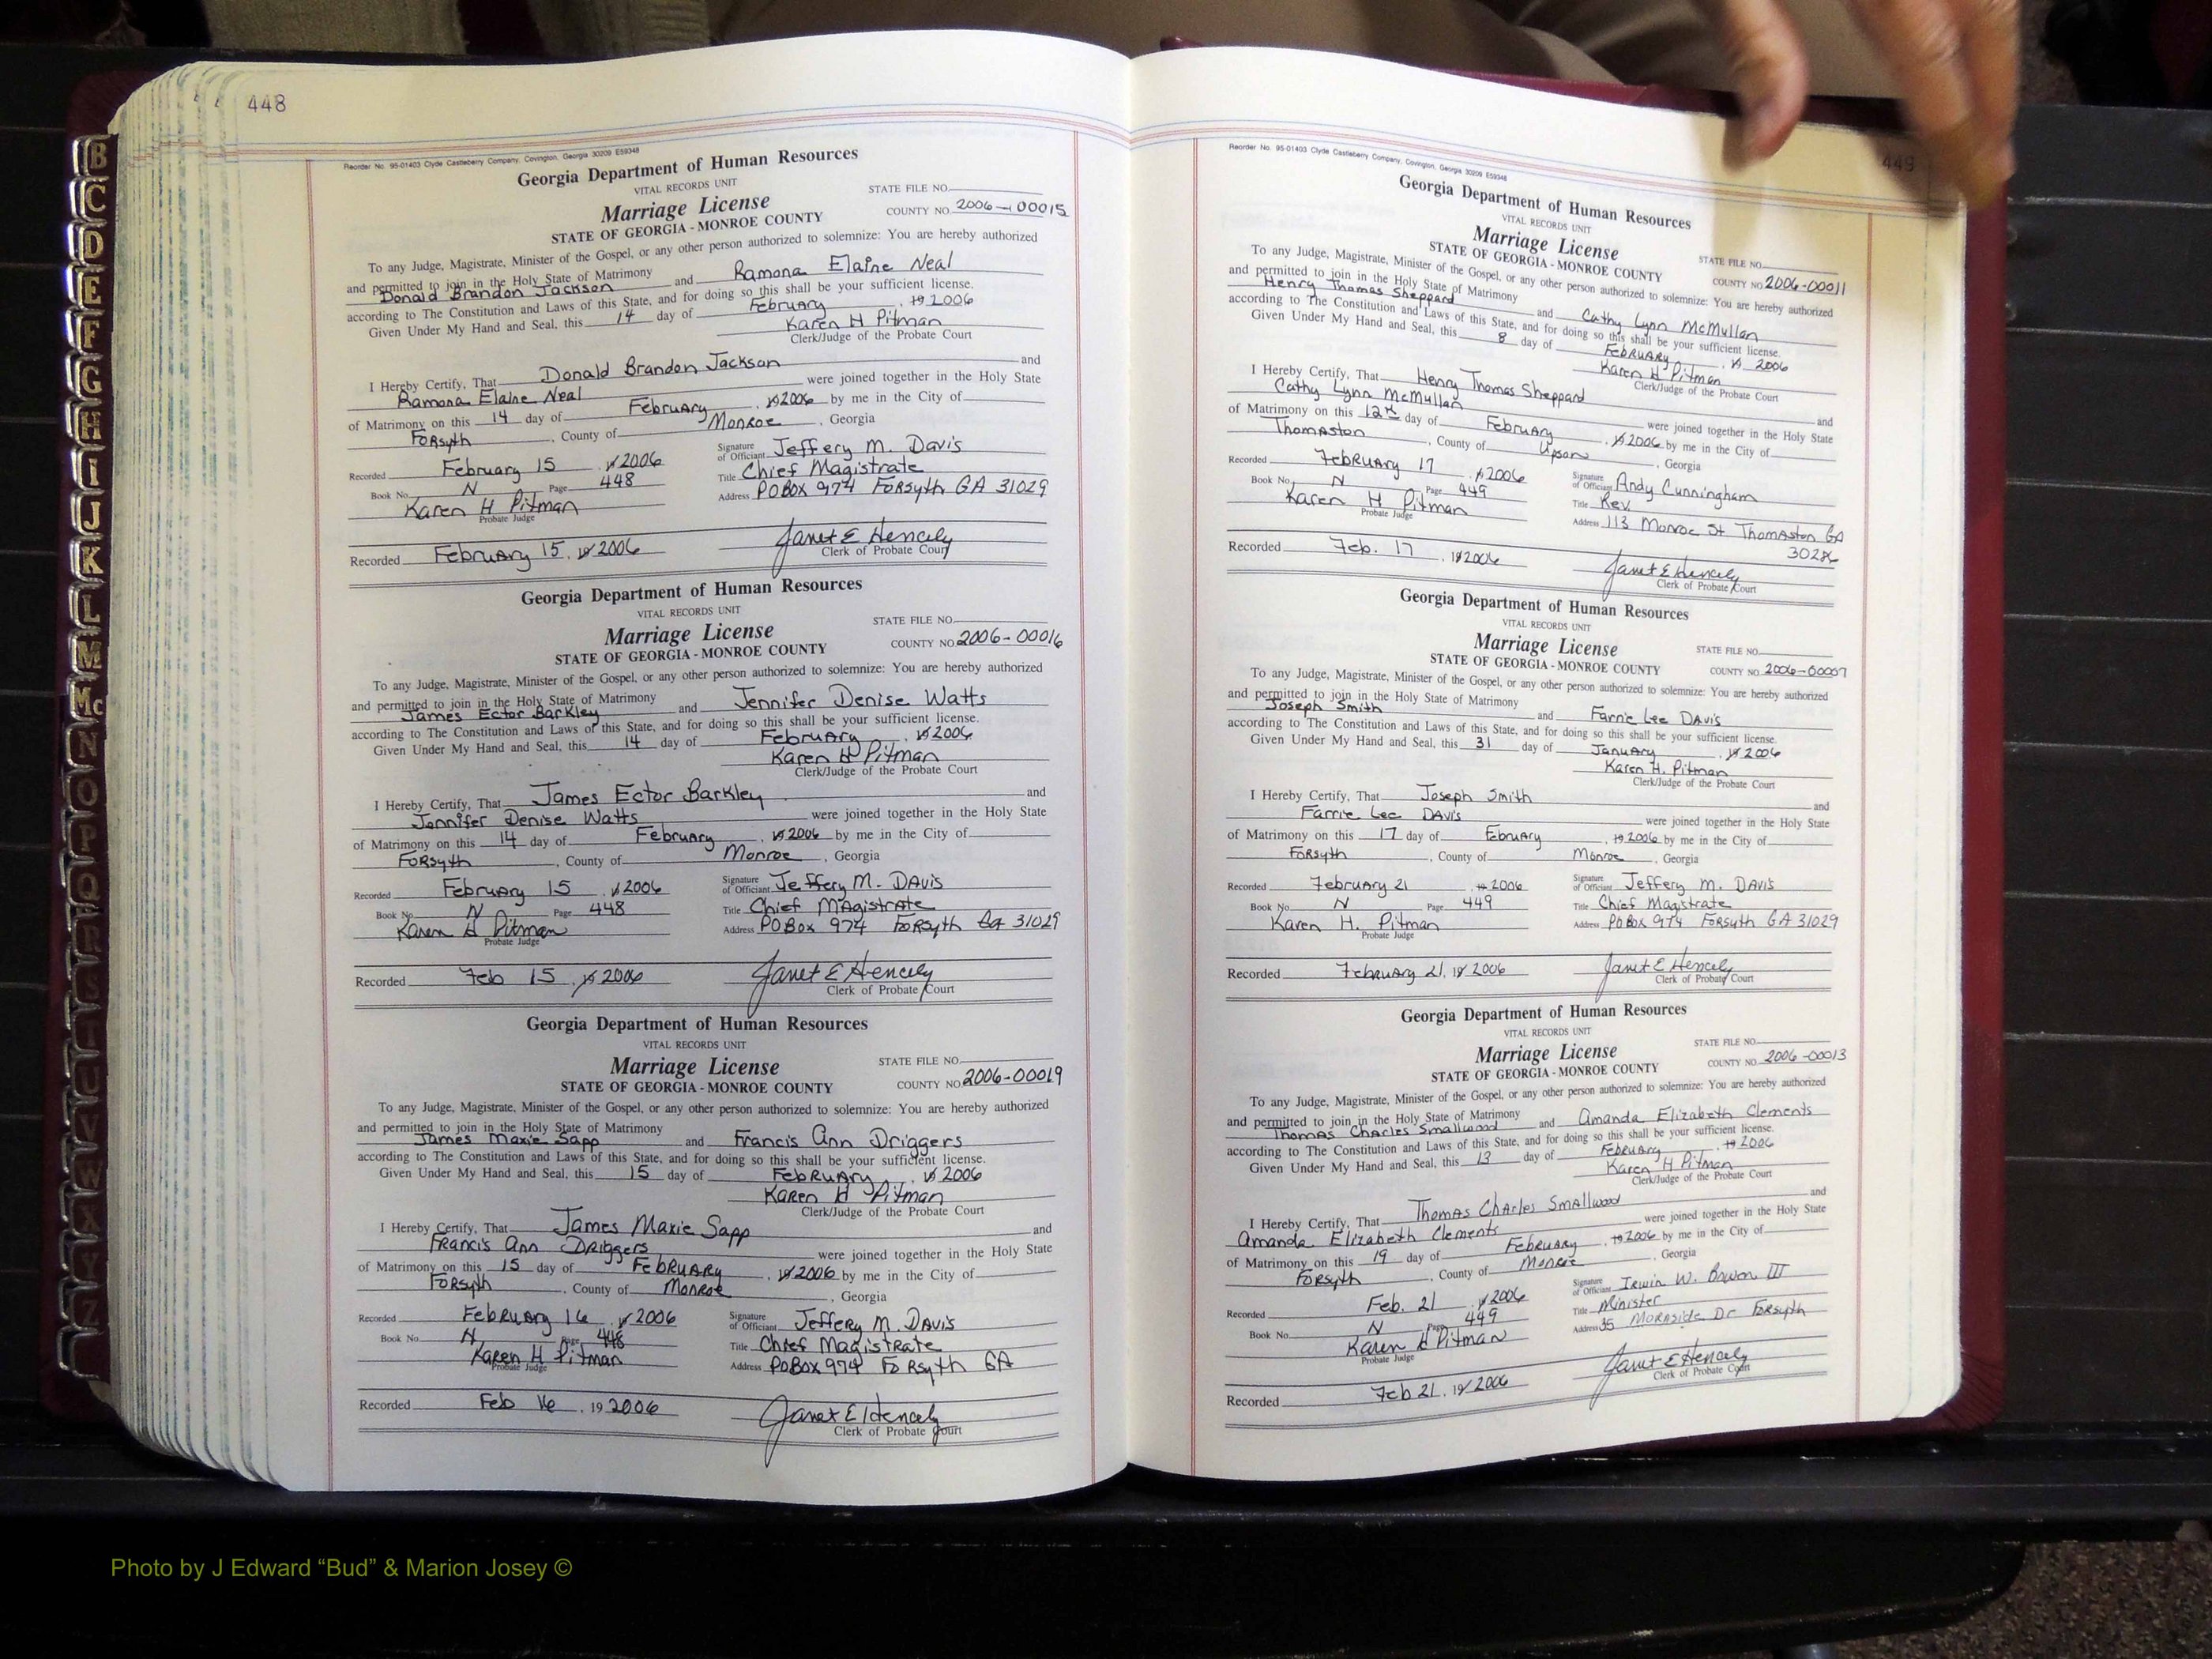 448
Reorder No. 95-01403 Clyde Castleberry Company, Covington, Georgia 30209 E59348
Georgia Department of Human Resources
VITAL RECORDS UNIT
STATE FILE NO.
Marriage License
COUNTY NO. 2006-00015
STATE OF GEORGIA - MONROE COUNTY
To any Judge, Magistrate, Minister of the Gospel, or any other person authorized to solemnize: You are hereby authorized
and permitted to join in the Holy State of Matrimony
Donald Brandon Jackson and Ramona Elaine Neal
according to The Constitution and Laws of this State, and for doing so this shall be your sufficient license.
Given Under My Hand and Seal, this 14 day of February, 19 2006
Karen H Pitman
Clerk/Judge of the Probate Court
I Hereby Certify, That Donald Brandon Jackson and
Ramona Elaine Neal were joined together in the Holy State
of Matrimony on this 14 day of February, 19 2006 by me in the City of
Forsyth, County of Monroe, Georgia
Recorded February 15, 19 2006
Signature of Officiant Jeffery M. Davis
Book No. N Page 448
Title Chief Magistrate
Karen H Pitman
Address PO Box 974 Forsyth GA 31029
Probate Judge
Recorded February 15, 19 2006
Janet E Hencely
Clerk of Probate Court
Georgia Department of Human Resources
VITAL RECORDS UNIT
STATE FILE NO.
Marriage License
COUNTY NO. 2006-00016
STATE OF GEORGIA - MONROE COUNTY
To any Judge, Magistrate, Minister of the Gospel, or any other person authorized to solemnize: You are hereby authorized
and permitted to join in the Holy State of Matrimony
James Ector Barkley and Jennifer Denise Watts
according to The Constitution and Laws of this State, and for doing so this shall be your sufficient license.
Given Under My Hand and Seal, this 14 day of February, 19 2006
Karen H Pitman
Clerk/Judge of the Probate Court
I Hereby Certify, That James Ector Barkley and
Jennifer Denise Watts were joined together in the Holy State
of Matrimony on this 14 day of February, 19 2006 by me in the City of
Forsyth, County of Monroe, Georgia
Recorded February 15, 19 2006
Signature of Officiant Jeffery M. Davis
Book No. N Page 448
Title Chief Magistrate
Karen H Pitman
Address PO Box 974 Forsyth Ga 31029
Probate Judge
Recorded Feb 15, 19 2006
Janet E Hencely
Clerk of Probate Court
Georgia Department of Human Resources
VITAL RECORDS UNIT
STATE FILE NO.
Marriage License
COUNTY NO. 2006-00019
STATE OF GEORGIA - MONROE COUNTY
To any Judge, Magistrate, Minister of the Gospel, or any other person authorized to solemnize: You are hereby authorized
and permitted to join in the Holy State of Matrimony
James Maxie Sapp and Francis Ann Driggers
according to The Constitution and Laws of this State, and for doing so this shall be your sufficient license.
Given Under My Hand and Seal, this 15 day of February, 19 2006
Karen H Pitman
Clerk/Judge of the Probate Court
I Hereby Certify, That James Maxie Sapp and
Francis Ann Driggers were joined together in the Holy State
of Matrimony on this 15 day of February, 19 2006 by me in the City of
Forsyth, County of Monroe, Georgia
Recorded February 16, 19 2006
Signature of Officiant Jeffery M. Davis
Book No. N Page 448
Title Chief Magistrate
Karen H Pitman
Address PO Box 974 Forsyth GA
Probate Judge
Recorded Feb 16, 19 2006
Janet E Hencely
Clerk of Probate Court
449
Reorder No. 95-01403 Clyde Castleberry Company, Covington, Georgia 30209 E59348
Georgia Department of Human Resources
VITAL RECORDS UNIT
Marriage License
STATE FILE NO.
STATE OF GEORGIA - MONROE COUNTY
COUNTY NO. 2006-00011
To any Judge, Magistrate, Minister of the Gospel, or any other person authorized to solemnize: You are hereby authorized
and permitted to join in the Holy State of Matrimony
Henry Thomas Sheppard and Cathy Lynn McMullan
according to The Constitution and Laws of this State, and for doing so this shall be your sufficient license.
Given Under My Hand and Seal, this 8 day of February, 19 2006
Karen H Pitman
Clerk/Judge of the Probate Court
I Hereby Certify, That Henry Thomas Sheppard and
Cathy Lynn McMullan were joined together in the Holy State
of Matrimony on this 12th day of February, 19 2006 by me in the City of
Thomaston, County of Upson, Georgia
Recorded February 17, 19 2006
Signature of Officiant Andy Cunningham
Book No. N Page 449
Title Rev.
Karen H Pitman
Address 113 Monroe St Thomaston GA
Probate Judge
30286
Recorded Feb. 17, 19 2006
Janet E Hencely
Clerk of Probate Court
Georgia Department of Human Resources
VITAL RECORDS UNIT
Marriage License
STATE FILE NO.
STATE OF GEORGIA - MONROE COUNTY
COUNTY NO. 2006-00007
To any Judge, Magistrate, Minister of the Gospel, or any other person authorized to solemnize: You are hereby authorized
and permitted to join in the Holy State of Matrimony
Joseph Smith and Farrie Lee Davis
according to The Constitution and Laws of this State, and for doing so this shall be your sufficient license.
Given Under My Hand and Seal, this 31 day of January, 19 2006
Karen H. Pitman
Clerk/Judge of the Probate Court
I Hereby Certify, That Joseph Smith and
Farrie Lee Davis were joined together in the Holy State
of Matrimony on this 17 day of February, 19 2006 by me in the City of
Forsyth, County of Monroe, Georgia
Recorded February 21, 19 2006
Signature of Officiant Jeffery M. Davis
Book No. N Page 449
Title Chief Magistrate
Karen H. Pitman
Address PO Box 974 Forsyth GA 31029
Probate Judge
Recorded February 21, 19 2006
Janet E Hencely
Clerk of Probate Court
Georgia Department of Human Resources
VITAL RECORDS UNIT
Marriage License
STATE FILE NO.
STATE OF GEORGIA - MONROE COUNTY
COUNTY NO. 2006-00013
To any Judge, Magistrate, Minister of the Gospel, or any other person authorized to solemnize: You are hereby authorized
and permitted to join in the Holy State of Matrimony
Thomas Charles Smallwood and Amanda Elizabeth Clements
according to The Constitution and Laws of this State, and for doing so this shall be your sufficient license.
Given Under My Hand and Seal, this 13 day of February, 19 2006
Karen H Pitman
Clerk/Judge of the Probate Court
I Hereby Certify, That Thomas Charles Smallwood and
Amanda Elizabeth Clements were joined together in the Holy State
of Matrimony on this 19 day of February, 19 2006 by me in the City of
Forsyth, County of Monroe, Georgia
Recorded Feb. 21, 19 2006
Signature of Officiant Irwin W. Bowen III
Book No. N Page 449
Title Minister
Karen H Pitman
Address 35 Morningside Dr Forsyth
Probate Judge
Recorded Feb 21, 19 2006
Janet E Hencely
Clerk of Probate Court
B
C
D
E
F
G
H
I
J
K
L
M
Mc
N
O
P
Q
R
S
T
U
V
W
X
Y
Z
Photo by J Edward “Bud” & Marion Josey ©